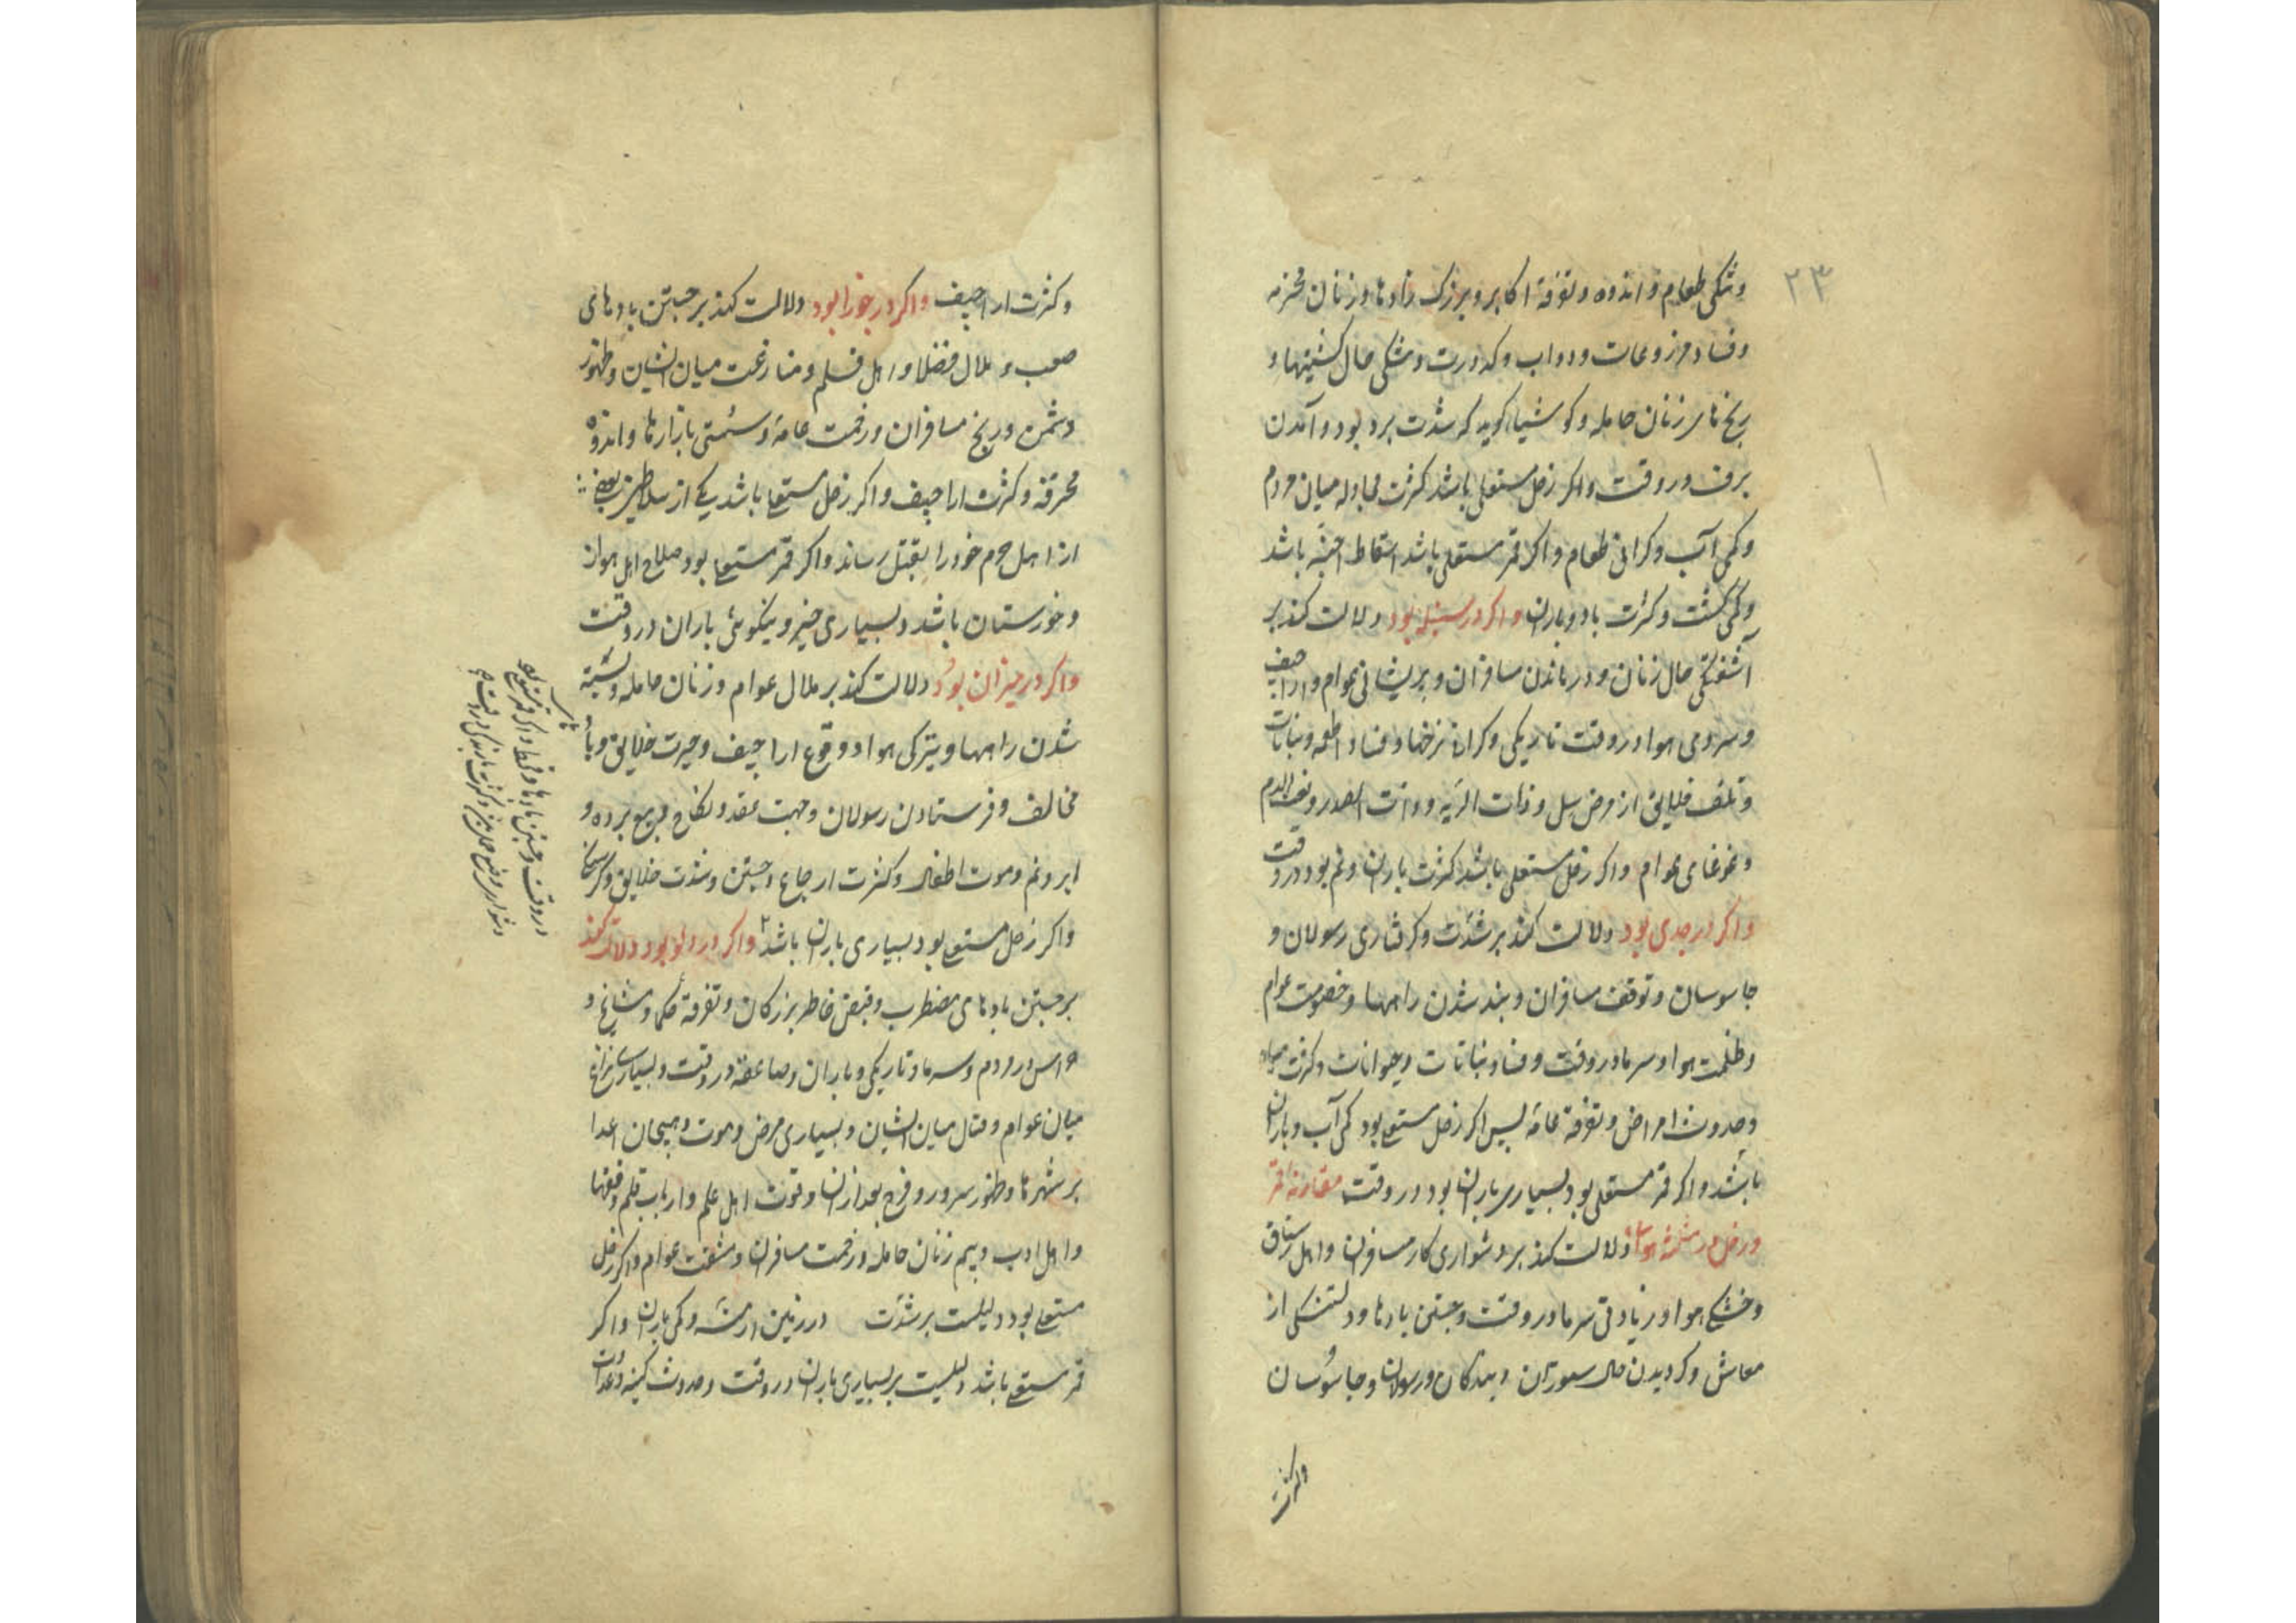 ۲۳
وتنکی طعام و اندوه و تفرقهٔ اکابر و بزرک زادها و زنان محترمه
وفساد مزروعات و دواب و کدورت و تنکی حال کشتیها و
رنج های زنان حامله و کوشیار کوید که شدت برد بود و آمدن
برف در وقت و اکر زحل مستعلی باشد کثرت مجادله میان مردم
و کمی آب و کرانی طعام و اکر قمر مستعلی باشد اسقاط اجنّه باشد
و کمی کشت و کثرت باد و باران و اکر در سنبله بود دلالت کند بر
آشفتکی حال زنان و درماندن مسافران و پریشانی عوام و اراجیف
و سردی هوا در وقت تاریکی و کرانی نرخها و فساد اطعمه و نباتات
و تلف خلایق از مرض سل و ذات الریه و ذات الصدر و نفث الدم
و غوغای عوام و اکر زحل مستعلی باشد کثرت باران و نم بود در وقت
و اکر در جدی بود دلالت کند بر شدّت و کرفتاری رسولان و
جاسوسان و توقف مسافران و بند شدن راهها و خصومت عوام
و ظلمت هوا و سرما در وقت و فساد نباتات و حیوانات و کثرت
و حدوث امراض و تفرقه عامّه پس اکر زحل مستعلی بود کمی آب و باران
باشد و اکر قمر مستعلی بود بسیاری باران بود در وقت مقارنه قمر
و زحل در مثلثهٔ هوائی دلالت کند بر دشواری کار مسافران و اهل رستاق
و خشکی هوا و زیادتی سرما در وقت و جستن بادها و دلتنکی از
معاش و کردیدن حال ستوران و بندکان و رسولان و جاسوسان
و کثرت
و کثرت اراجیف و اکر در جوزا بود دلالت کند بر جستن بادهای
صعب و ملال فضلا و اهل قلم و منازعت میان ایشان و ظهور
دشمن و رنج مسافران و زحمت عامه و سستی بازارها و اندوه
محرقه و کثرت اراجیف و اکر زحل مستعلی باشد یکی از سلاطین بعضی
از اهل حرم خود را بقتل رساند و اکر قمر مستعلی بود صلاح اهل اهواز
و خوزستان باشد و بسیاری خیر و نیکوئی باران در وقت
و اکر در میزان بود دلالت کند بر ملال عوام و زنان حامله و بسته
شدن راهها و تیرکی هوا و وقوع اراجیف و حیرت خلایق و باد
مخالف و فرستادن رسولان و جهت عقد و نکاح و بیع برده و
ابر و نم و موت اطفال و کثرت ارجاع و جستن و شدت خلایق و کرسنکی
و اکر زحل مستعلی بود بسیاری باران باشد و اکر در دلو بود دلالت کند
بر جستن بادهای مضطرب و قبض خاطر بزرکان و تفرقهٔ حکما و مشایخ و
هراس در مردم و سرما و تاریکی و باران و صاعقه در وقت و بسیاری نزاع
میان عوام و قتال میان ایشان و بسیاری مرض و موت و هیجان اعدا
بر شهرها و ظهور سرور و فرح بعد از آن و قوت اهل علم و ارباب قلم و فقها
و اهل ادب و بیم زنان حامله و زحمت مسافران و مشقت عوام و اکر زحل
مستعلی بود دلیلست بر شدّت در زمین ارمنیه و کمی باران و اکر
قمر مستعلی باشد دلیلست بر بسیاری باران در وقت و حدوث کینه و عداوت
باشد و قحط و اکر قمر مستعلی بود
در وقت و جستن بادها